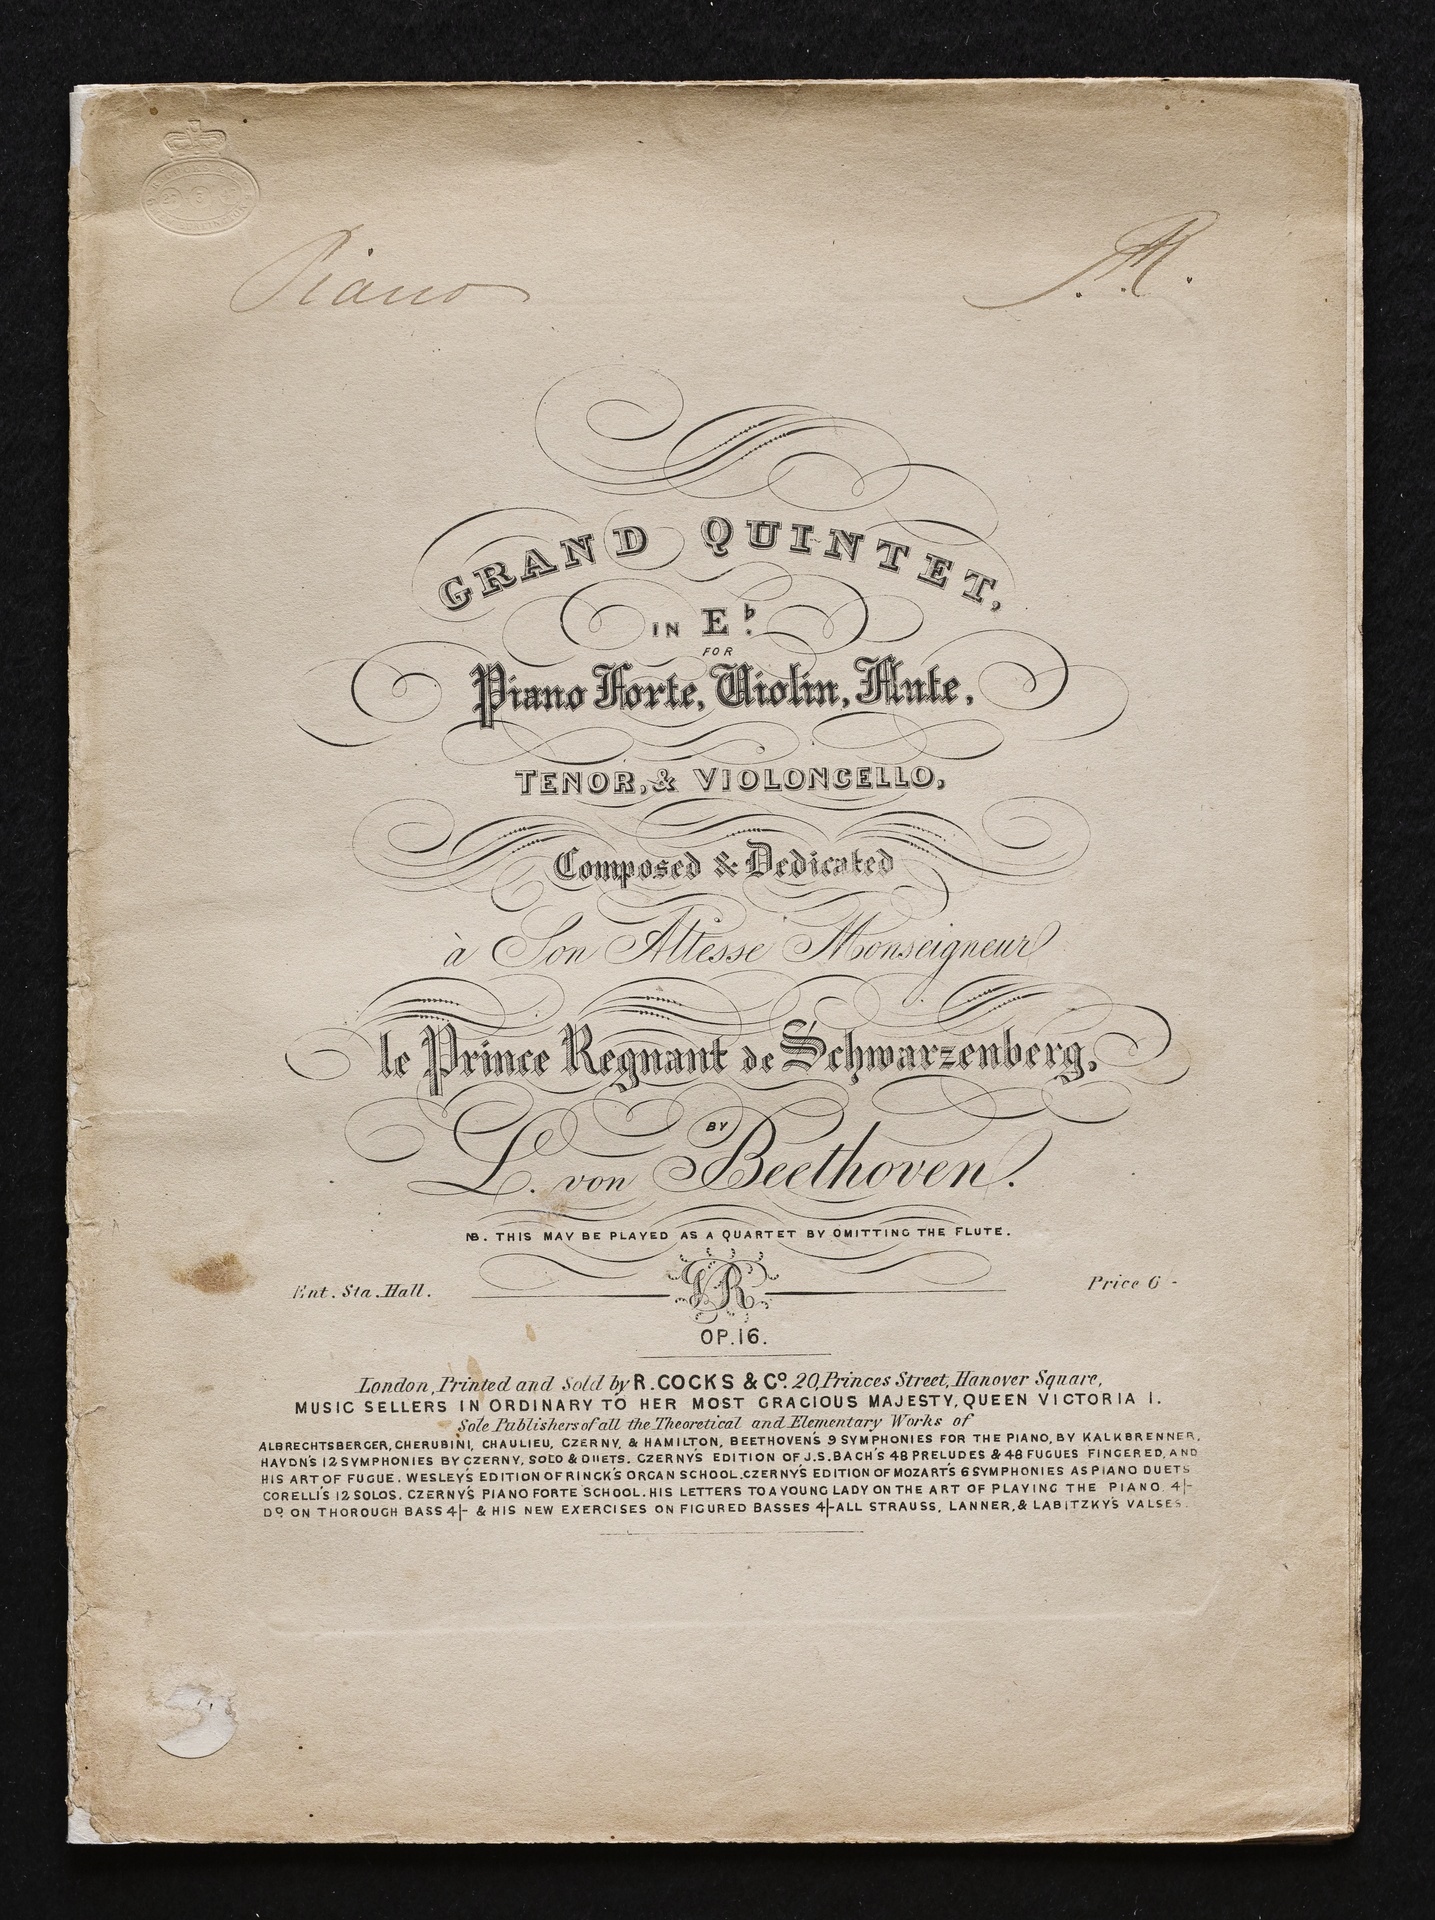 Piano
GRAND QUINTET,
IN E♭.
FOR
Piano Forte, Violin, Flute,
TENOR, & VIOLONCELLO,
Composed & Dedicated
à Son Altesse Monseigneur
le Prince Regnant de Schwarzenberg,
BY
L. von Beethoven.
NB. THIS MAY BE PLAYED AS A QUARTET BY OMITTING THE FLUTE.
Ent. Sta. Hall.
VR
Price 6 -
OP. 16.
London, Printed and Sold by R. COCKS & Co. 20, Princes Street, Hanover Square,
MUSIC SELLERS IN ORDINARY TO HER MOST GRACIOUS MAJESTY, QUEEN VICTORIA I.
Sole Publishers of all the Theoretical and Elementary Works of
ALBRECHTSBERGER, CHERUBINI, CHAULIEU, CZERNY, & HAMILTON, BEETHOVEN'S 9 SYMPHONIES FOR THE PIANO, BY KALKBRENNER,
HAYDN'S 12 SYMPHONIES BY CZERNY, SOLO & DUETS. CZERNY'S EDITION OF J.S. BACH'S 48 PRELUDES & 48 FUGUES FINGERED, AND
HIS ART OF FUGUE. WESLEY'S EDITION OF RINCK'S ORGAN SCHOOL. CZERNY'S EDITION OF MOZART'S 6 SYMPHONIES AS PIANO DUETS
CORELLI'S 12 SOLOS. CZERNY'S PIANO FORTE SCHOOL. HIS LETTERS TO A YOUNG LADY ON THE ART OF PLAYING THE PIANO. 4/-
Do. ON THOROUGH BASS 4/- & HIS NEW EXERCISES ON FIGURED BASSES 4/- ALL STRAUSS, LANNER, & LABITZKY'S VALSES.